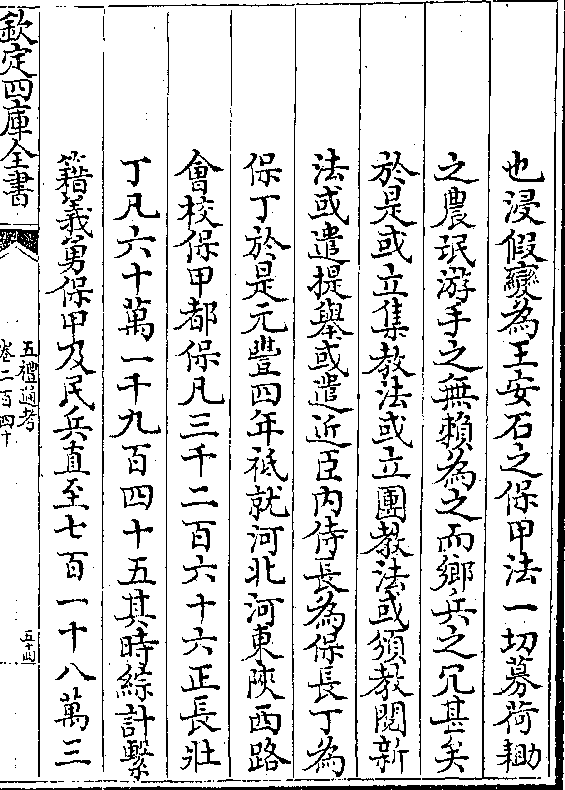 也浸假變為王安石之保甲法一切募荷耡
之農氓游手之無賴為之而鄉兵之冗甚矣
於是或立集教法或立團教法或頒教閱新
法或遣提舉或遣近臣内侍長為保長丁為
保丁於是元豐四年祗就河北河東陜西路
會校保甲都保凡三千二百六十六正長壯
丁凡六十萬一千九百四十五其時綜計繫
籍義勇保甲及民兵直至七百一十八萬三
欽定四庫全書
五禮通考
卷二百四十
五十四